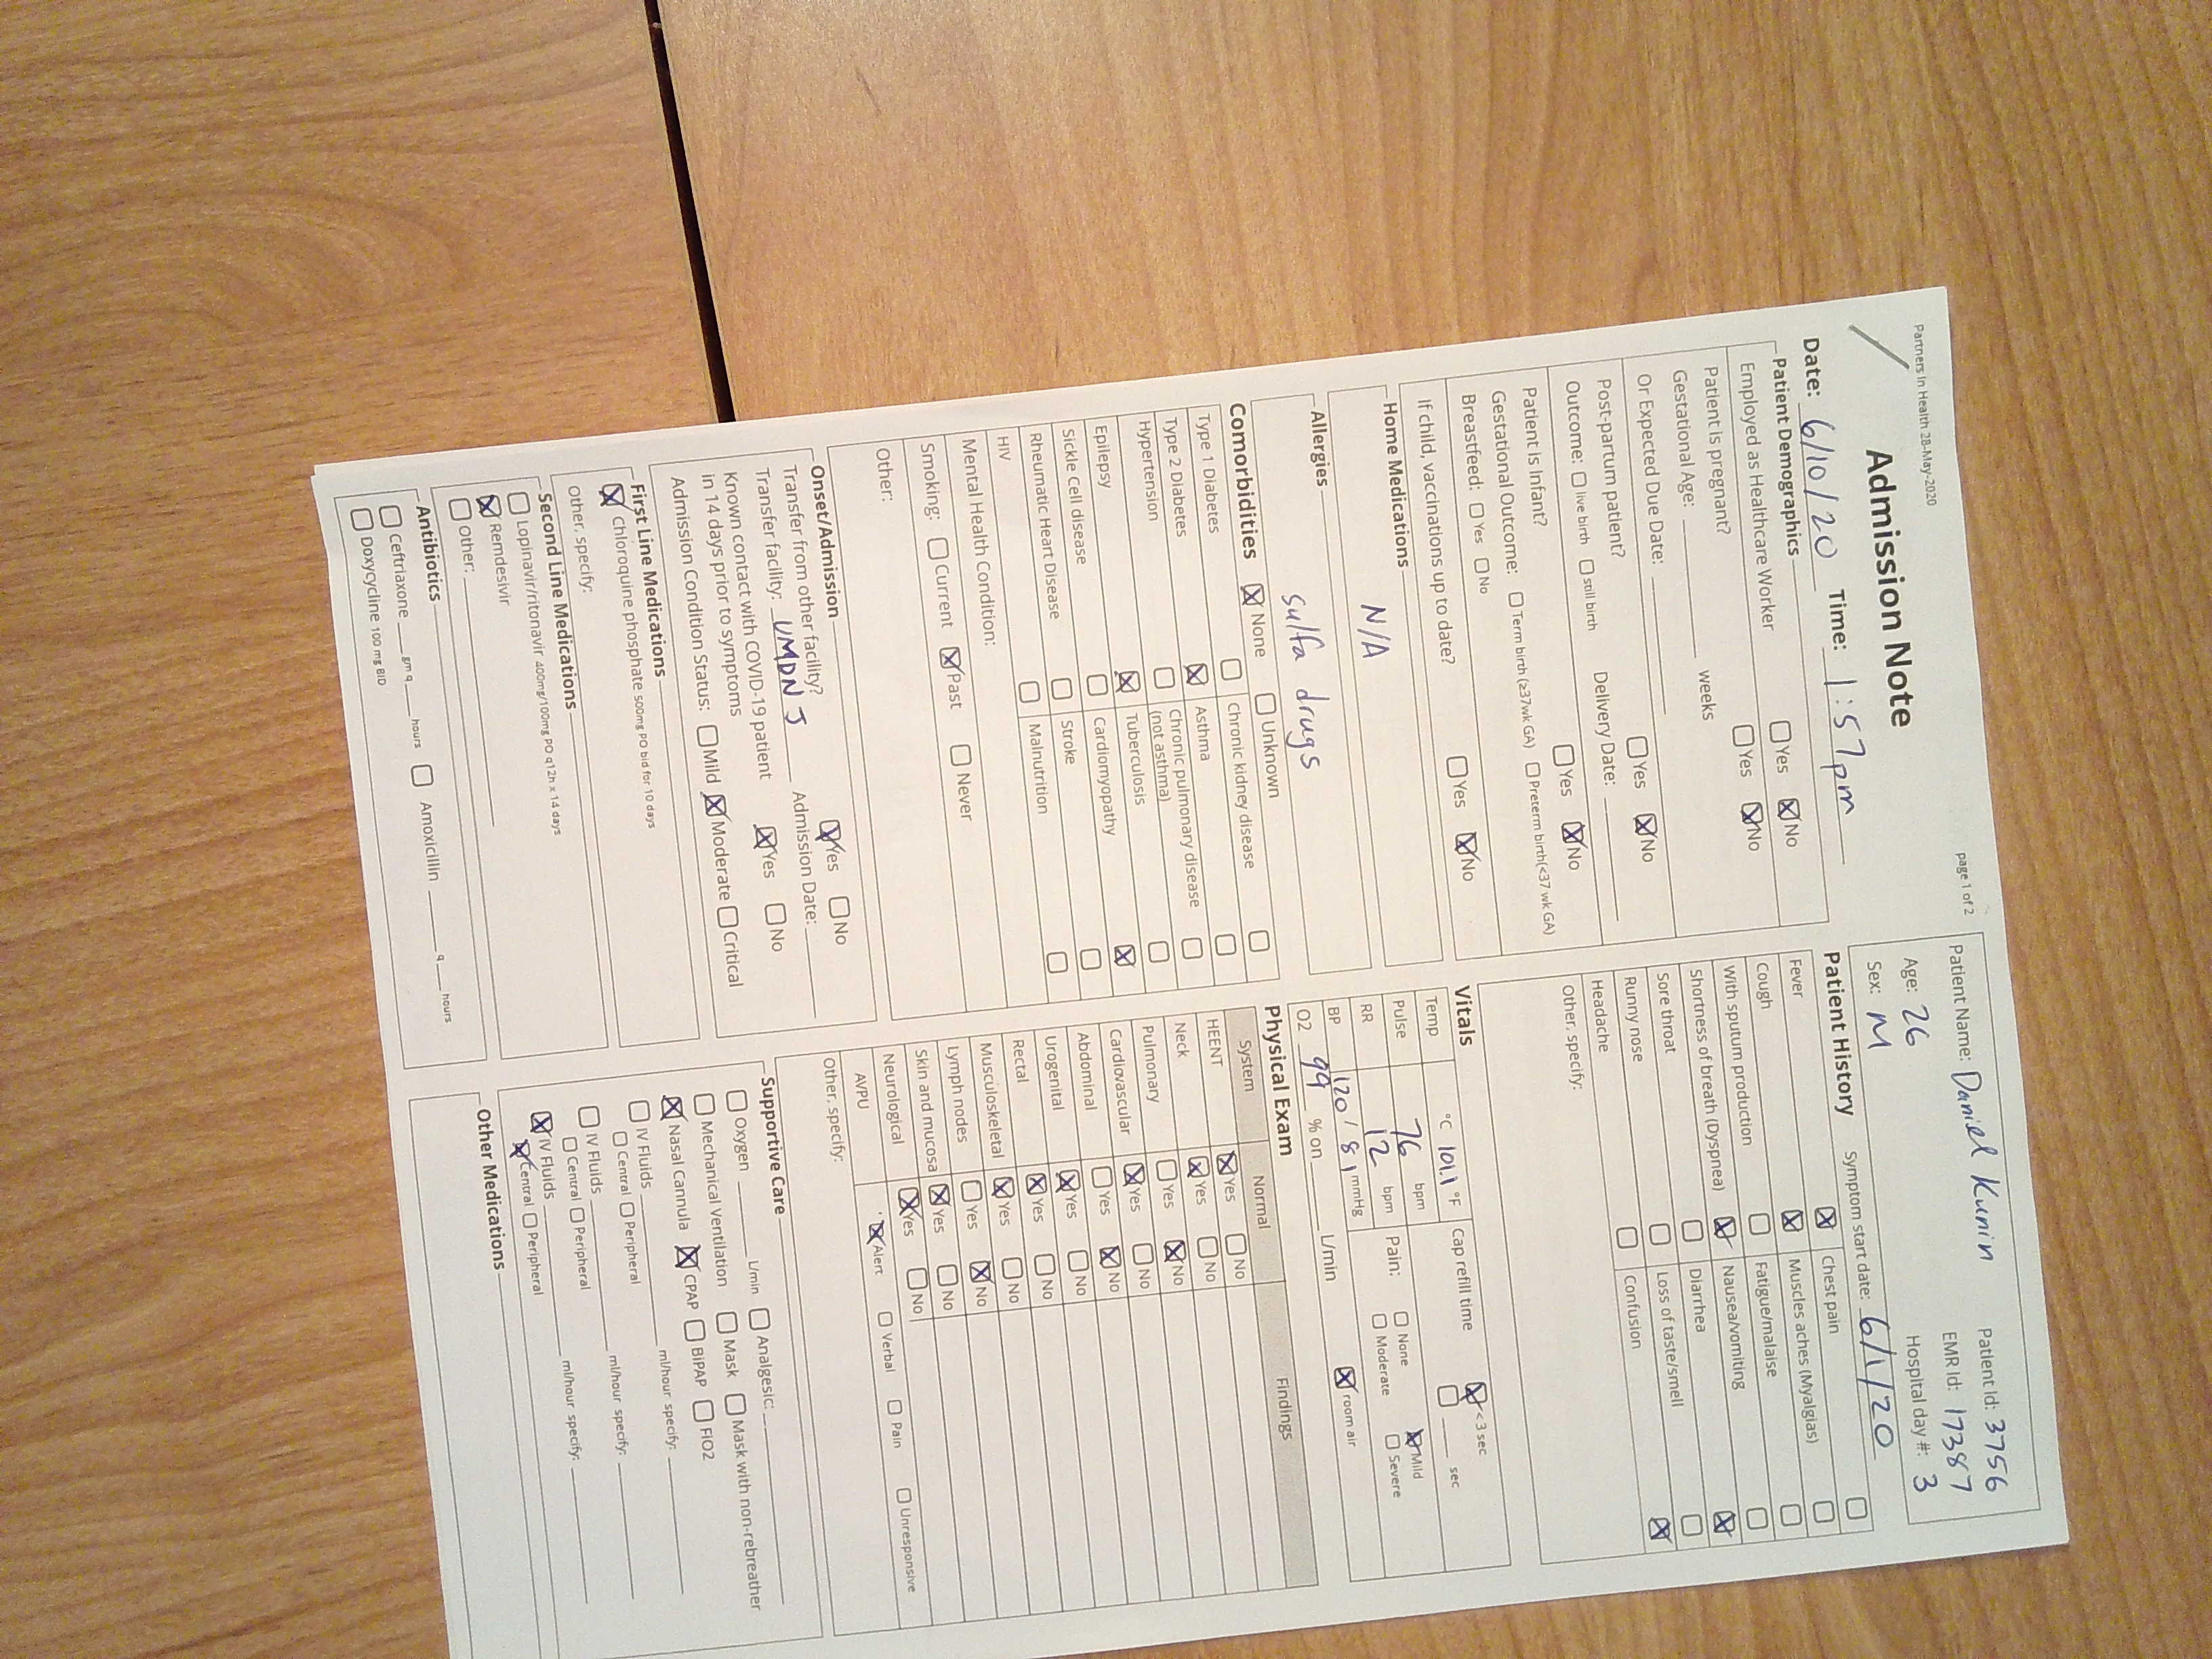 Partners In Health 28-May-2020
page 1 of 2
Admission Note
Date: 6/10/20 Time: 1:57pm
Patient Demographics
Employed as Healthcare Worker Yes No
Patient is pregnant? Yes No
Gestational Age: weeks
Or Expected Due Date:
Post-partum patient? Yes No
Outcome: live birth still birth Delivery Date:
Patient is Infant? Yes No
Gestational Outcome: Term birth (≥37wk GA) Preterm birth(<37 wk GA)
Breastfeed: Yes No
If child, vaccinations up to date? Yes No
Home Medications
N/A
Allergies
sulfa drugs
Comorbidities None Unknown
Type 1 Diabetes Chronic kidney disease
Type 2 Diabetes Asthma
Hypertension Chronic pulmonary disease
(not asthma)
Epilepsy Tuberculosis
Sickle Cell disease Cardiomyopathy
Rheumatic Heart Disease Stroke
HIV Malnutrition
Mental Health Condition:
Smoking: Current Past Never
Other:
Onset/Admission
Transfer from other facility? Yes No
Transfer facility: UMDNJ Admission Date:
Known contact with COVID-19 patient
in 14 days prior to symptoms Yes No
Admission Condition Status: Mild Moderate Critical
First Line Medications
Chloroquine phosphate 500mg PO bid for 10 days
Other, specify:
Second Line Medications
Lopinavir/ritonavir 400mg/100mg PO q12h x 14 days
Remdesivir
Other:
Antibiotics
Ceftriaxone gm q hours Amoxicillin q hours
Doxycycline 100 mg BID
Patient Name: Daniel Kunin Patient Id: 3756
EMR Id: 17387
Age: 26 Hospital day #: 3
Sex: M
Patient History Symptom start date: 6/1/20
Fever Chest pain
Cough Muscles aches (Myalgias)
With sputum production Fatigue/malaise
Shortness of breath (Dyspnea) Nausea/vomiting
Sore throat Diarrhea
Runny nose Loss of taste/smell
Headache Confusion
Other, specify:
Vitals
Temp °C 101.1 °F Cap refill time < 3 sec
sec
Pulse 76 bpm Pain: None Mild
RR 12 bpm Moderate Severe
BP 120/81 mmHg
O2 99 % on L/min room air
Physical Exam
System Normal Findings
HEENT Yes No
Neck Yes No
Pulmonary Yes No
Cardiovascular Yes No
Abdominal Yes No
Urogenital Yes No
Rectal Yes No
Musculoskeletal Yes No
Lymph nodes Yes No
Skin and mucosa Yes No
Neurological Yes No
AVPU Alert Verbal Pain Unresponsive
Other, specify:
Supportive Care
Oxygen L/min Analgesic:
Mechanical Ventilation Mask Mask with non-rebreather
Nasal Cannula CPAP BiPAP FiO2
IV Fluids ml/hour specify:
Central Peripheral
IV Fluids ml/hour specify:
Central Peripheral
IV Fluids ml/hour specify:
Central Peripheral
Other Medications